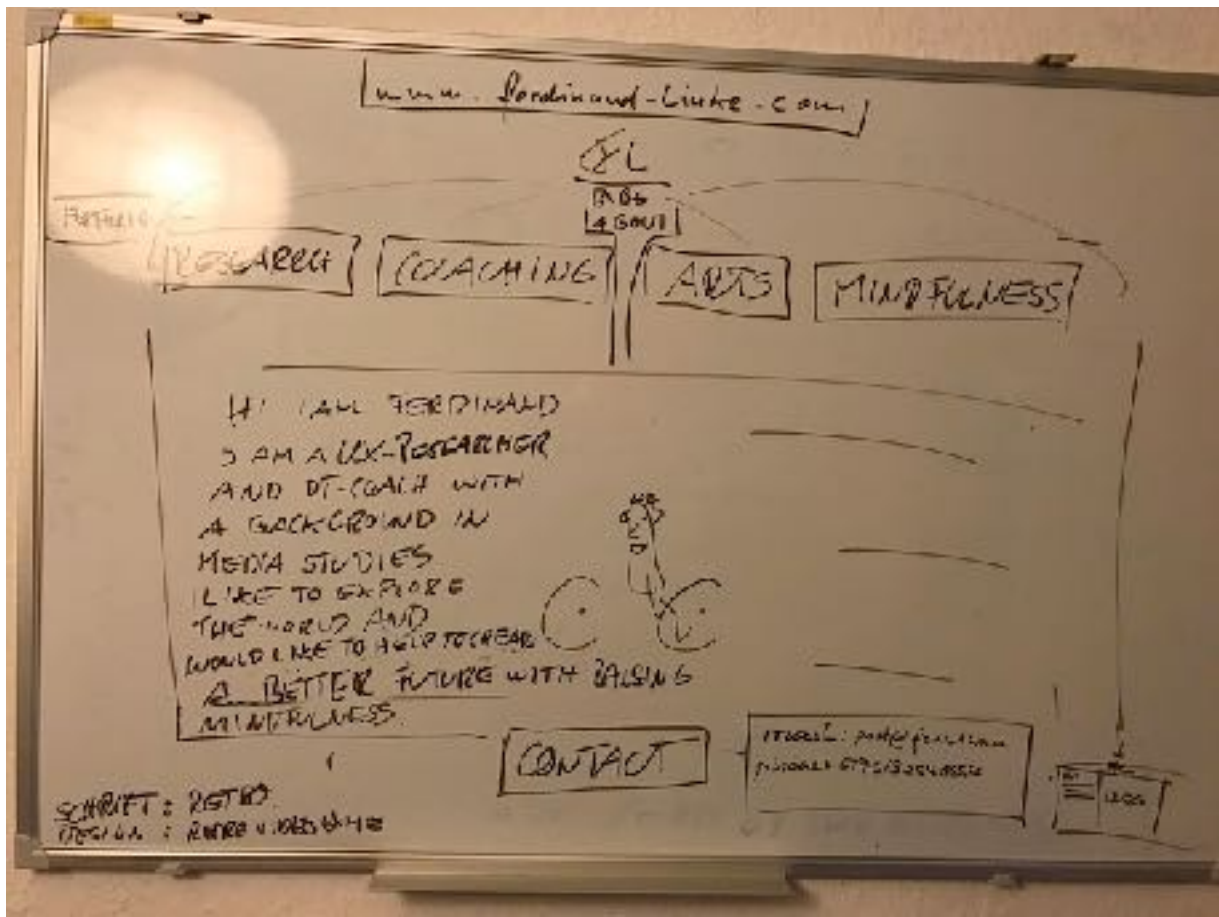 www.ferdinand-linke.com
FL
ABOUT
RESEARCH
COACHING
ARTS
MINDFULNESS
HI I AM FERDINAND
I AM A UX-RESEARCHER
AND DT-COACH WITH
A BACKGROUND IN
MEDIA STUDIES
I LIKE TO EXPLORE
THE WORLD AND
WOULD LIKE TO HELP TO CREATE
A BETTER FUTURE WITH RAISING
MINDFULNESS
CONTACT
SCHRIFT: RETRO
DESIGN: